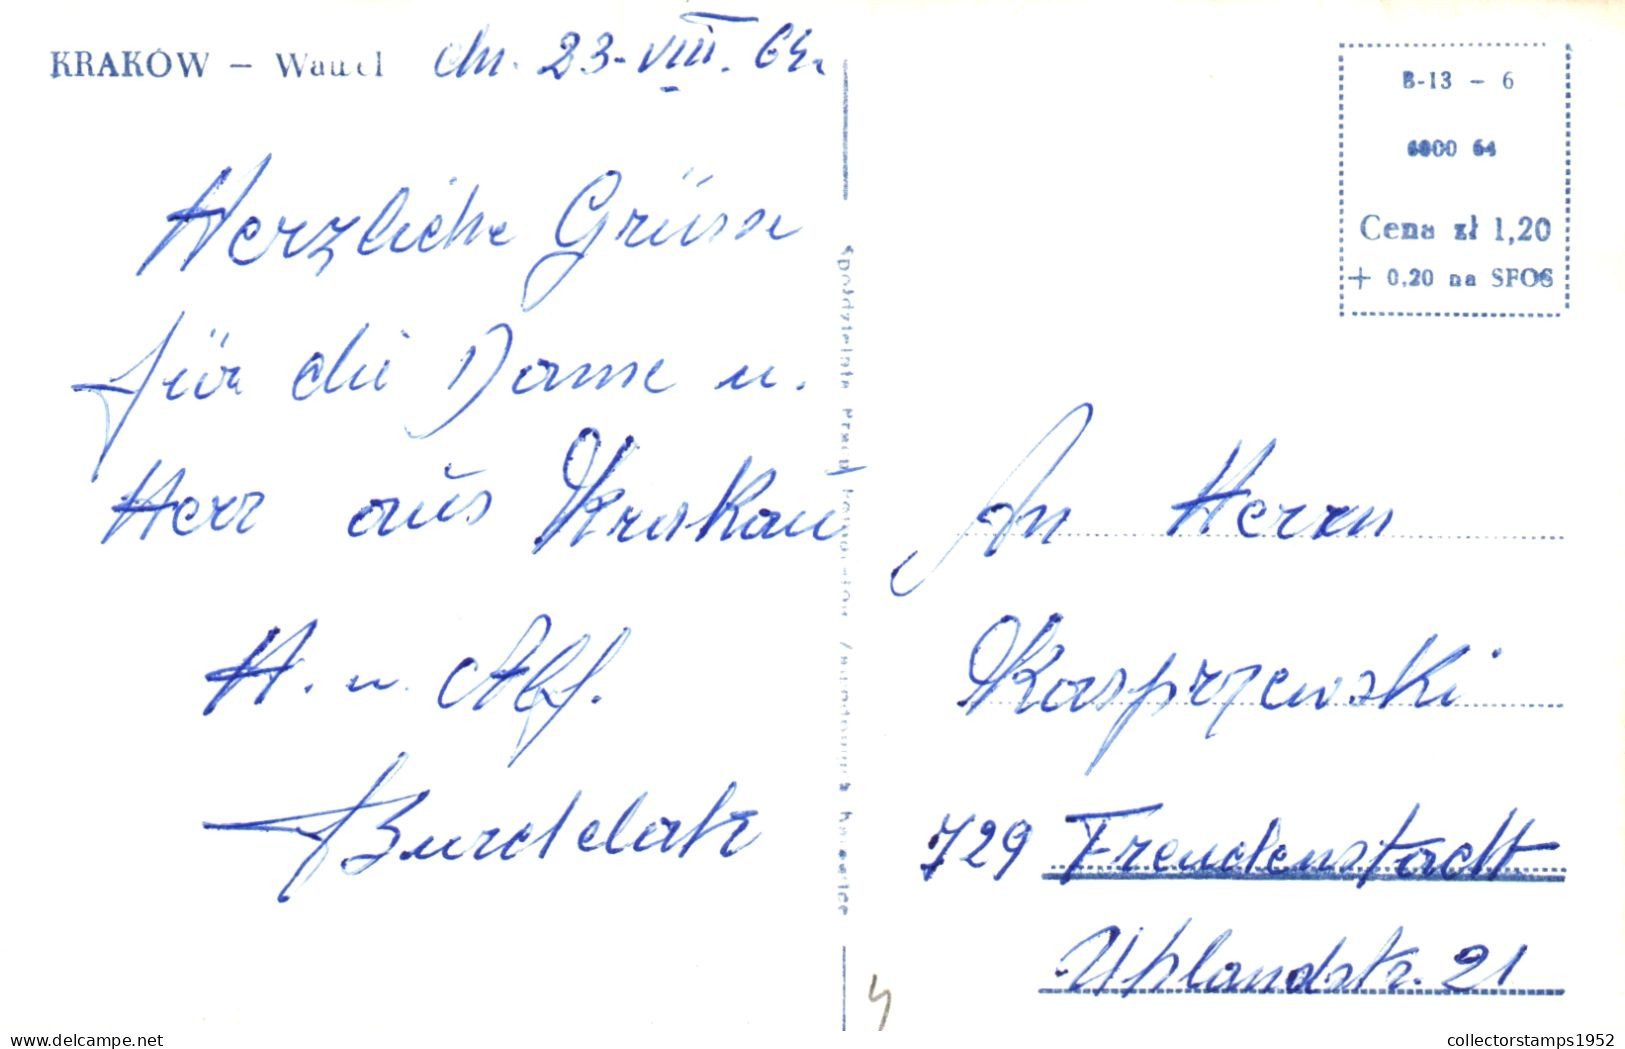 KRAKÓW – Wawel dn. 23-VIII. 64r.
Herzliche Grüsse
für die Dame u.
Herr aus Krakau
H. u. Alf.
B-13 – 6
6000 64
Cena zł 1,20
+ 0,20 na SFOS
An Herrn
Kasprzewski
729 Freudenstadt
Uhlandstr. 21
delcampe.net
collectorstamps1952